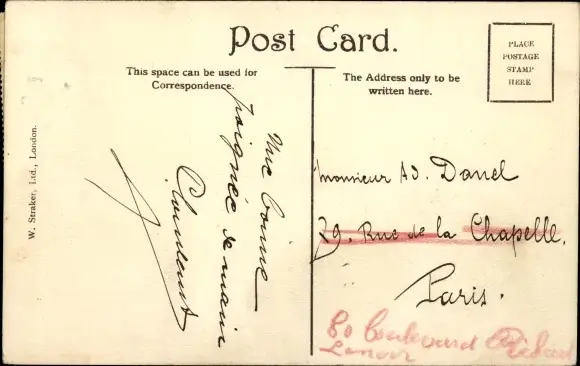 Post Card.
PLACE
POSTAGE
STAMP
HERE
This space can be used for
Correspondence.
The Address only to be
written here.
W. Straker, Ltd., London.
Une bonne
poignée de main
Monsieur Ad. Danel
79, Rue de la Chapelle.
Paris.
80 Boulevard Richard
Lenoir